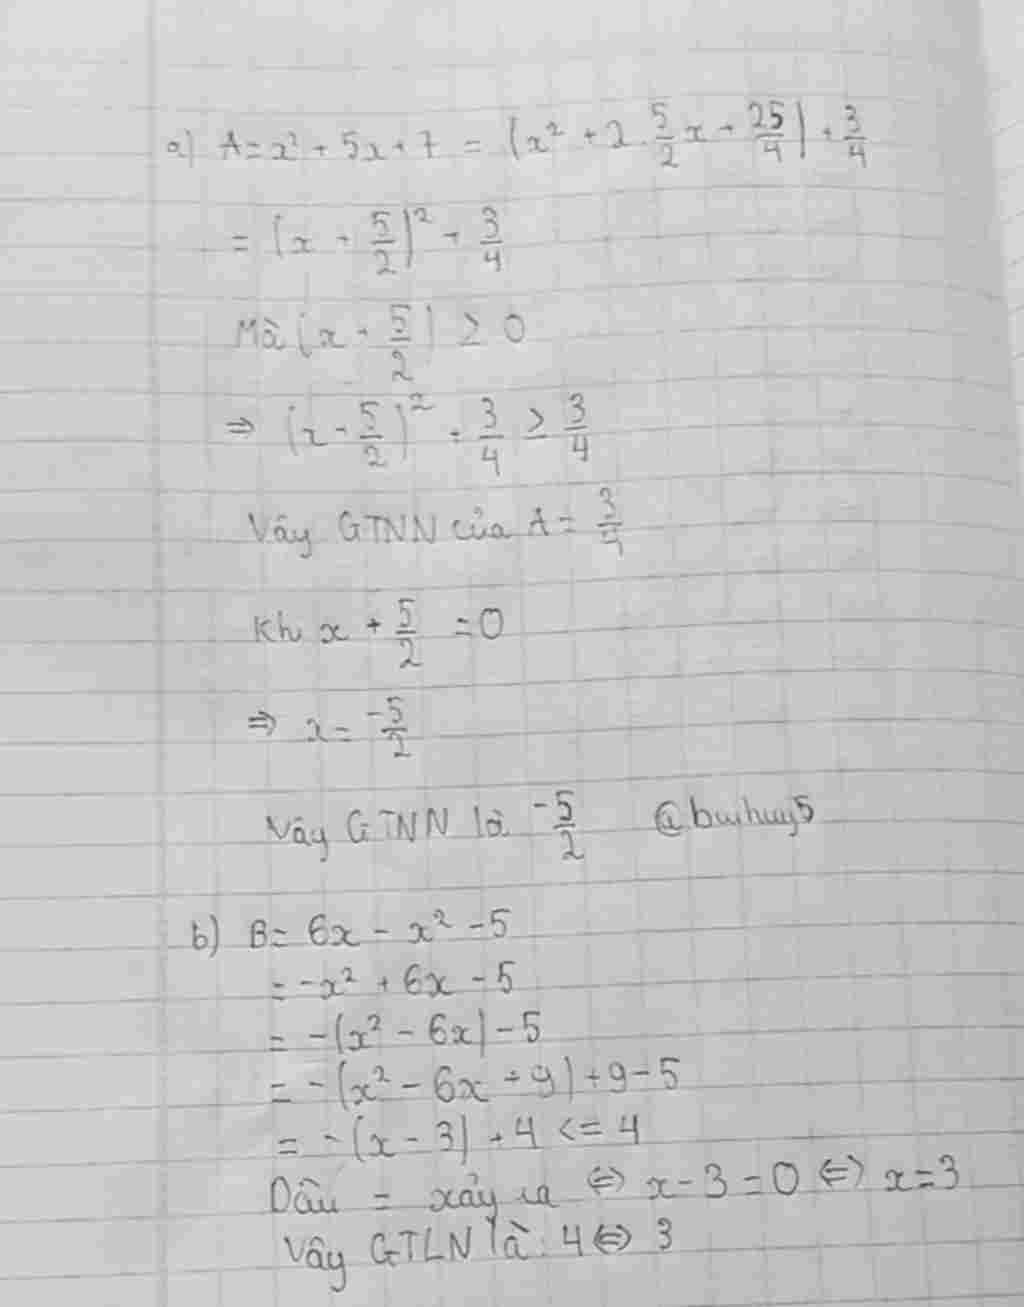 a) A = x² + 5x + 7 = (x² + 2 . 5/2 x + 25/4) + 3/4
= (x + 5/2)² + 3/4
Mà (x + 5/2) ≥ 0
⇒ (x + 5/2)² + 3/4 ≥ 3/4
Vây GTNN của A = 3/4
Khi x + 5/2 = 0
⇒ x = -5/2
Vây GTNN là -5/2 @buihuy5
b) B = 6x - x² - 5
= -x² + 6x - 5
= -(x² - 6x) - 5
= -(x² - 6x + 9) + 9 - 5
= -(x - 3) + 4 <= 4
Dấu = xảy ra ⇔ x - 3 = 0 ⇔ x = 3
Vây GTLN là : 4 ⇔ 3